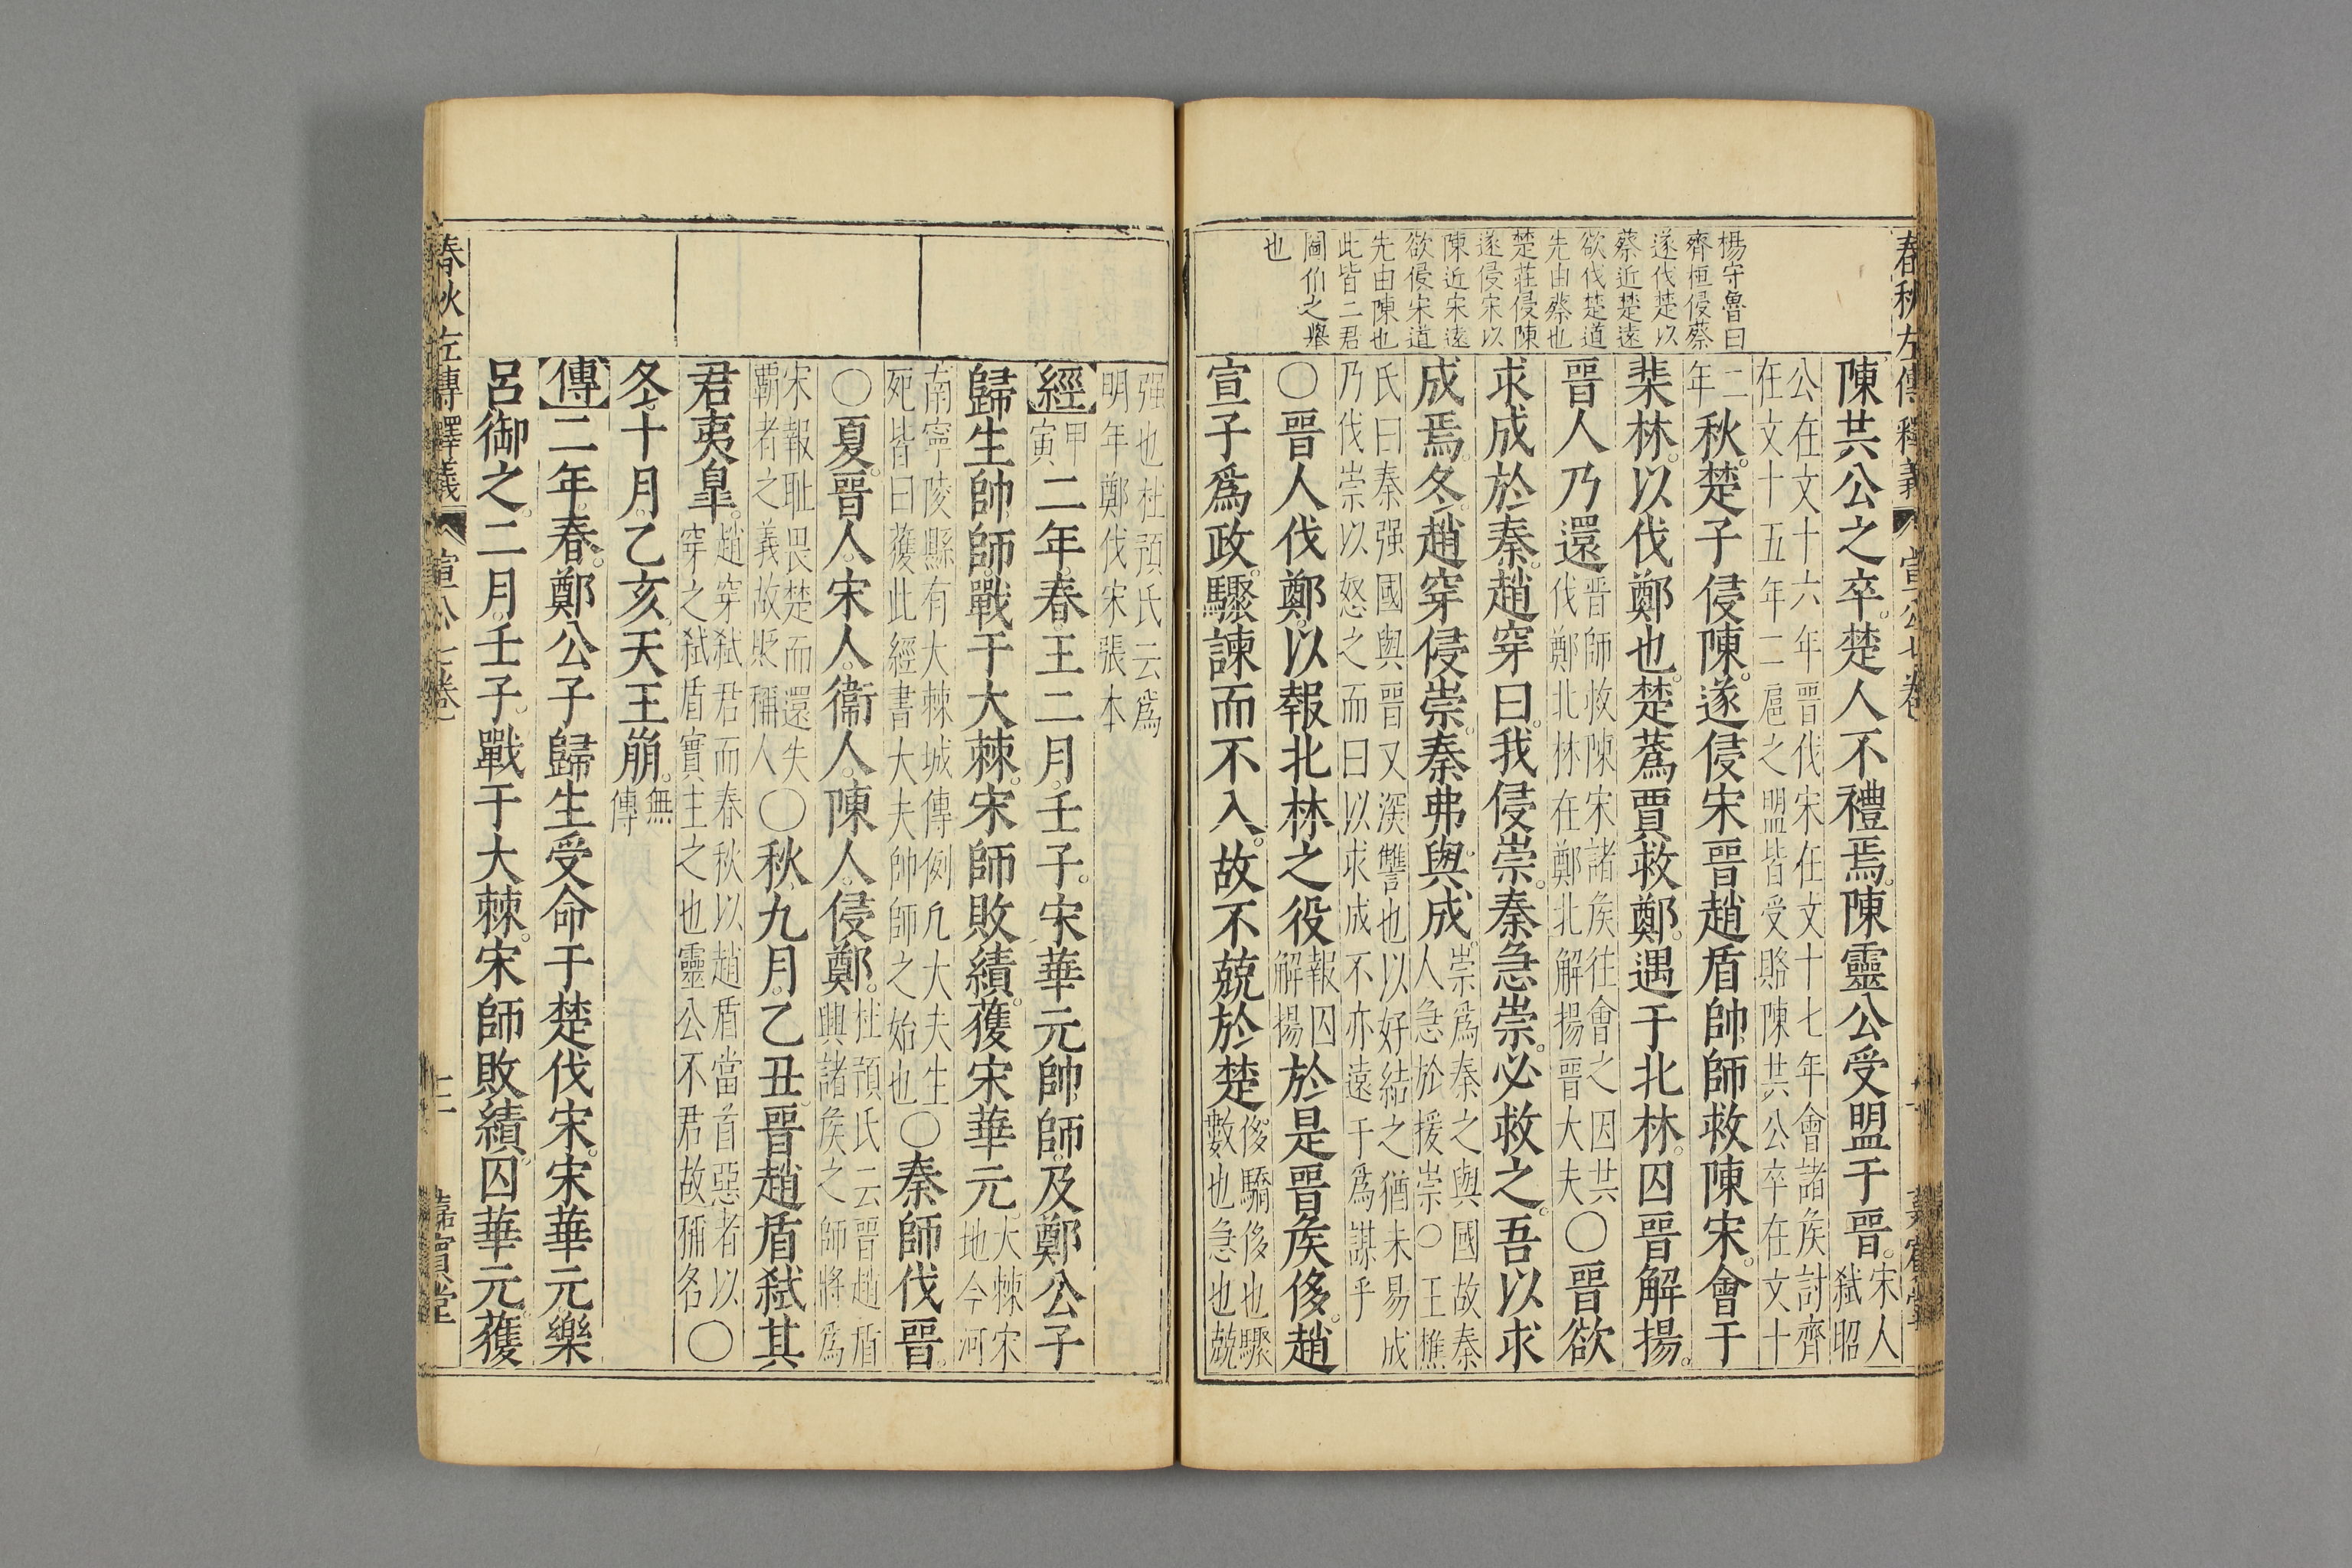 春秋左傳釋義 宣公七卷
楊守魯曰
齊桓侵蔡
遂伐楚以
蔡近楚遠
欲伐楚道
先由蔡也
楚莊侵陳
遂侵宋以
陳近宋遠
欲侵宋道
先由陳也
此皆二君
圖伯之舉
也
陳共公之卒。楚人不禮焉。陳靈公受盟于晉。宋人弑昭
公在文十六年晉伐宋在文十七年會諸矦討齊在文十五年二扈之盟皆受賂陳共公卒在文十
二年秋。楚子侵陳。遂侵宋晉趙盾帥師救陳宋。會于
棐林。以伐鄭也。楚蒍賈救鄭。遇于北林。囚晉解揚。
晉人乃還晉師救陳宋諸矦往會之因共伐鄭北林在鄭北解揚晉大夫〇晉欲
求成於秦。趙穿曰。我侵崇。秦急崇。必救之。吾以求
成焉。冬。趙穿侵崇。秦弗與成。崇爲秦之與國故秦人急於援崇〇王樵
氏曰秦强國與晉又深讐也以好結之猶未易成乃伐崇以怒之而曰以求成不亦遠于爲謀乎
〇晉人伐鄭。以報北林之役報囚解揚於是晉矦侈。趙
宣子爲政。驟諫而不入。故不兢於楚侈驕侈也驟數也急也兢
强也杜預氏云爲明年鄭伐宋張本
經甲寅二年。春。王二月。壬子。宋華元帥師。及鄭公子
歸生帥師。戰于大棘。宋師敗績。獲宋華元。大棘宋地今河
南寧陵縣有大棘城傳例凡大夫生死皆曰獲此經書大夫帥師之始也〇秦師伐晉。
〇夏。晉人。宋人。衞人。陳人。侵鄭。杜預氏云晉趙盾興諸矦之師將爲
宋報耻畏楚而還失霸者之義故貶稱人〇秋。九月。乙丑。晉趙盾弑其
君夷臯。趙穿弑君而春秋以趙盾當首惡者以穿之弑盾實主之也靈公不君故稱名〇
冬。十月。乙亥。天王崩。無傳
傳二年。春。鄭公子歸生受命于楚伐宋。宋華元樂
呂御之。二月。壬子。戰于大棘。宋師敗績。囚華元。獲
春秋左傳釋義 宣公七卷 二 嘉賓堂